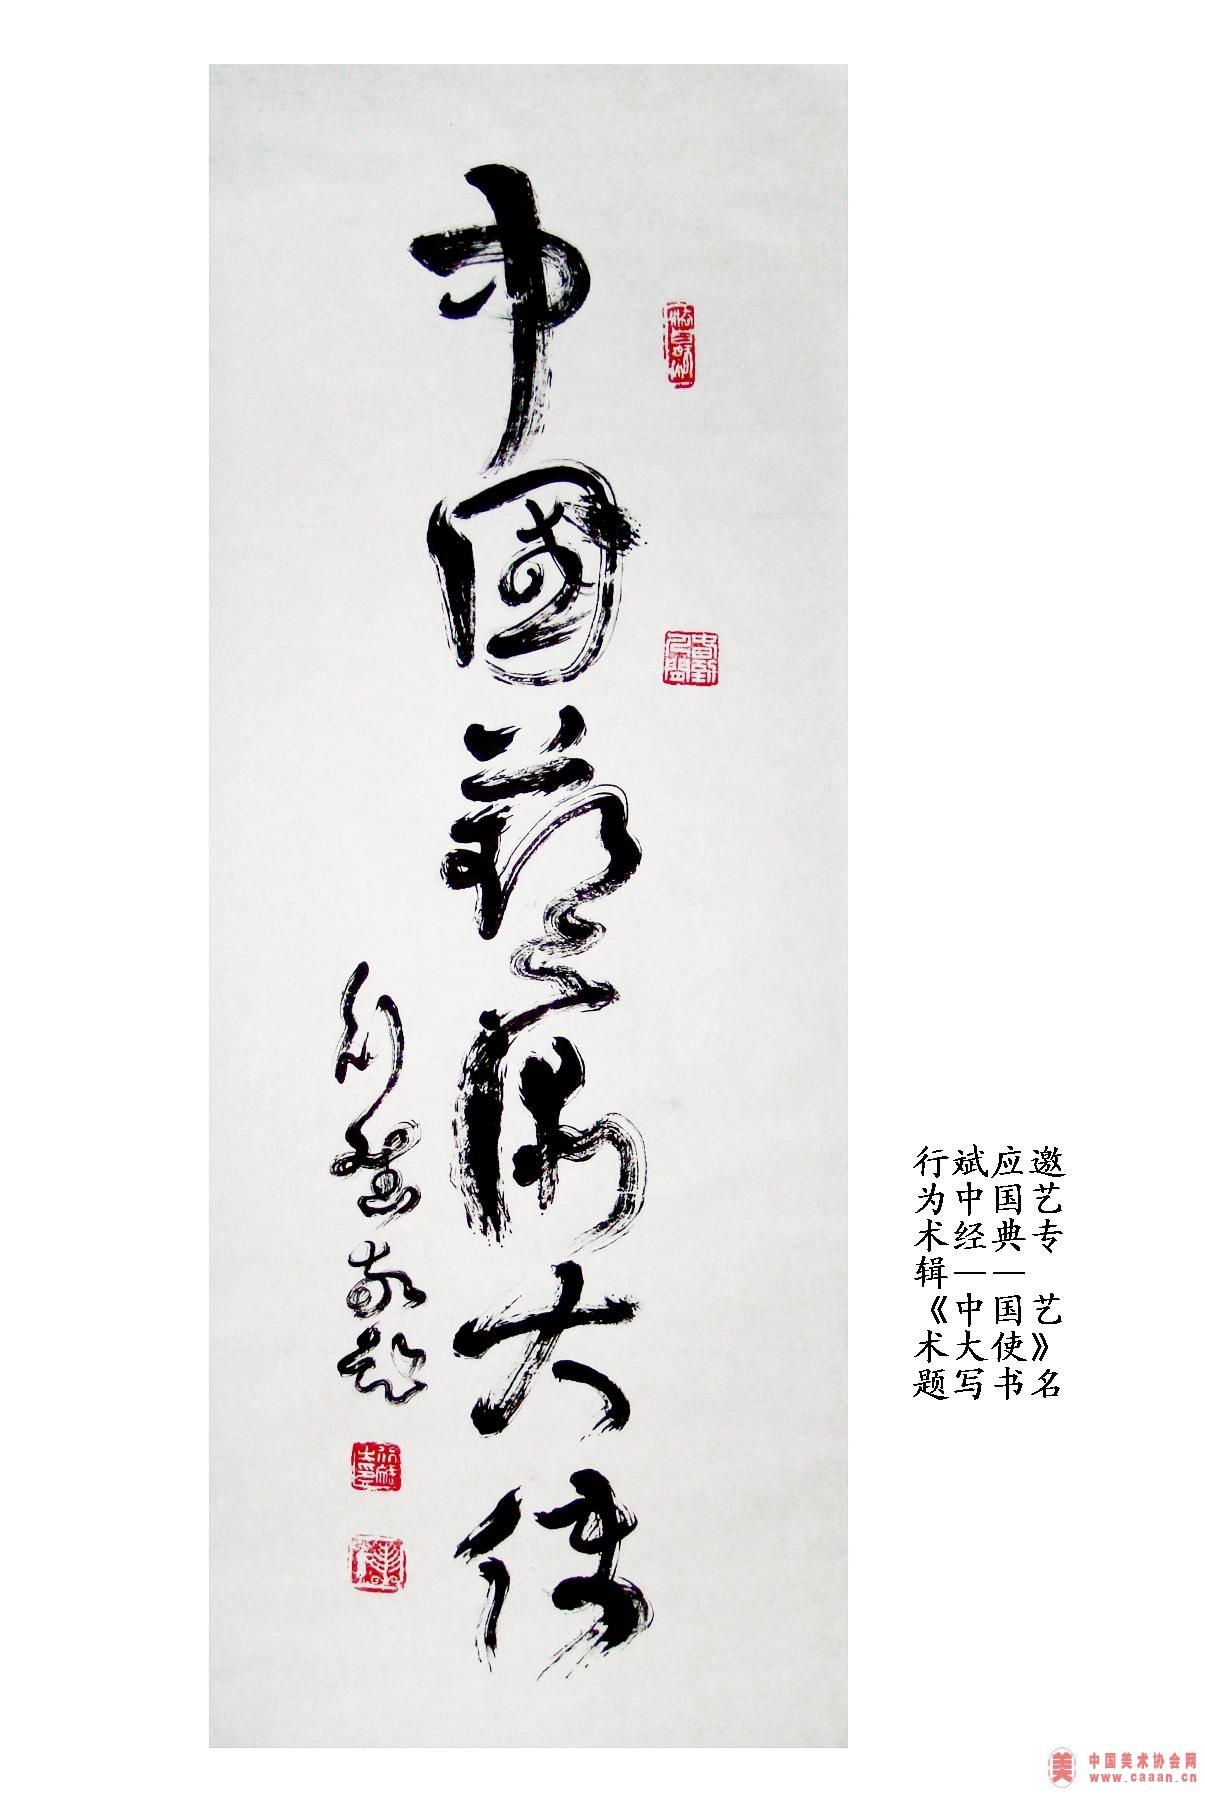 中國藝術大使
行斌敬題
行斌应邀
为中国艺
术经典专
辑——
《中国艺
术大使》
题写书名
中国美术协会网
www.caaan.cn